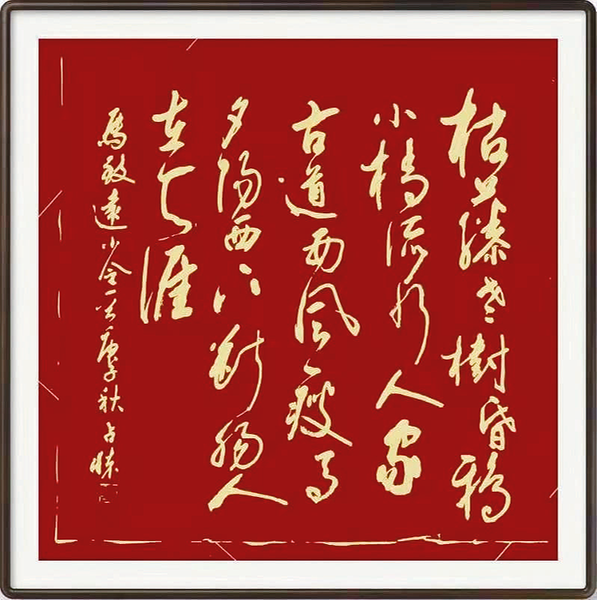 枯藤老樹昏鴉
小橋流水人家
古道西風瘦馬
夕陽西下斷腸人
在天涯
馬致遠小令一首庚子秋占